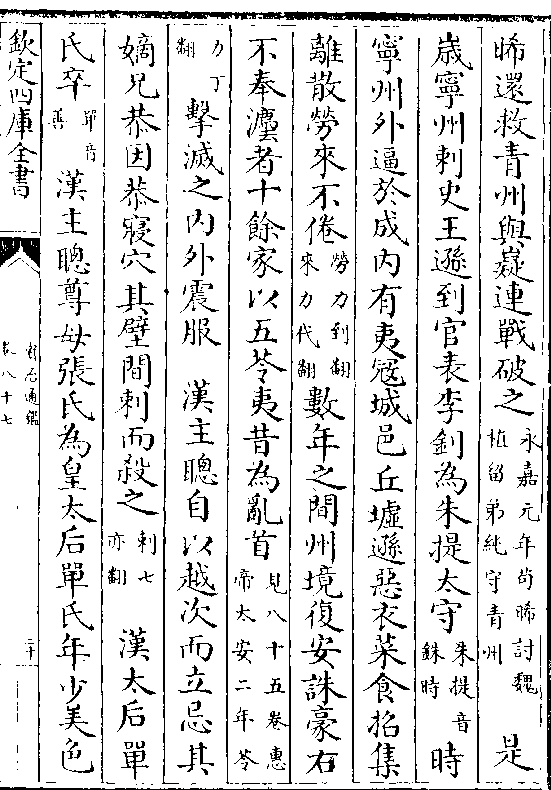 晞還救青州與嶷連戰破之永嘉元年茍晞討魏植留弟純守青州 是
歲寧州刺史王遜到官表李釗為朱提太守朱提音銖時 時
寧州外逼於成内有夷寇城邑丘墟遜惡衣菜食招集
離散勞來不倦勞力到翻來力代翻數年之間州境復安誅豪右
不奉灋者十餘家以五苓夷昔為亂首見八十五卷惠帝太安二年苓
力丁翻擊滅之内外震服 漢主聰自以越次而立忌其
嫡兄恭因恭寢穴其壁間刺而殺之刺七亦翻 漢太后單
氏卒單音善 漢主聰尊母張氏為皇太后單氏年少美色
欽定四庫全書
資治通鑑
卷八十七
二十